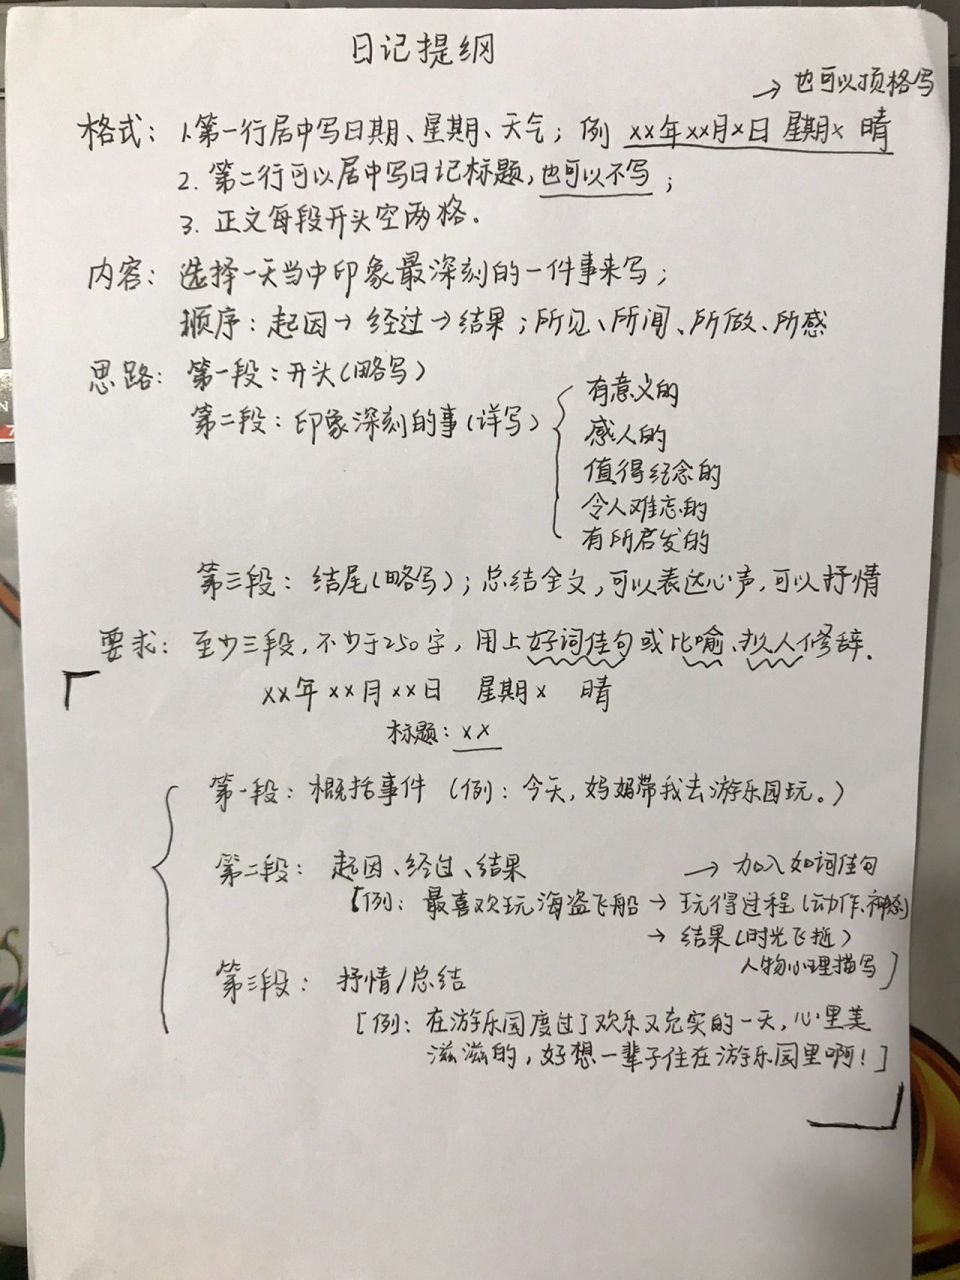 日记提纲
→ 也可以顶格写
格式：1.第一行居中写日期、星期、天气；例 xx年xx月x日 星期x 晴
2. 第二行可以居中写日记标题，也可以不写；
3. 正文每段开头空两格。
内容：选择一天当中印象最深刻的一件事来写；
顺序：起因→经过→结果；所见、所闻、所做、所感
思路：第一段：开头（略写）
第二段：印象深刻的事（详写）
有意义的
感人的
值得纪念的
令人难忘的
有所启发的
第三段：结尾（略写）；总结全文，可以表达心声，可以抒情
要求：至少三段，不少于250字，用上好词佳句或比喻、拟人修辞.
xx年xx月xx日 星期x 晴
标题：xx
第一段：概括事件（例：今天，妈妈带我去游乐园玩。）
第二段：起因、经过、结果 → 加入好词佳句
[例：最喜欢玩海盗飞船 → 玩得过程（动作、神态）
→ 结果（时光飞逝）
人物心理描写]
第三段：抒情/总结
[例：在游乐园度过了欢乐又充实的一天，心里美
滋滋的，好想一辈子住在游乐园里啊！]